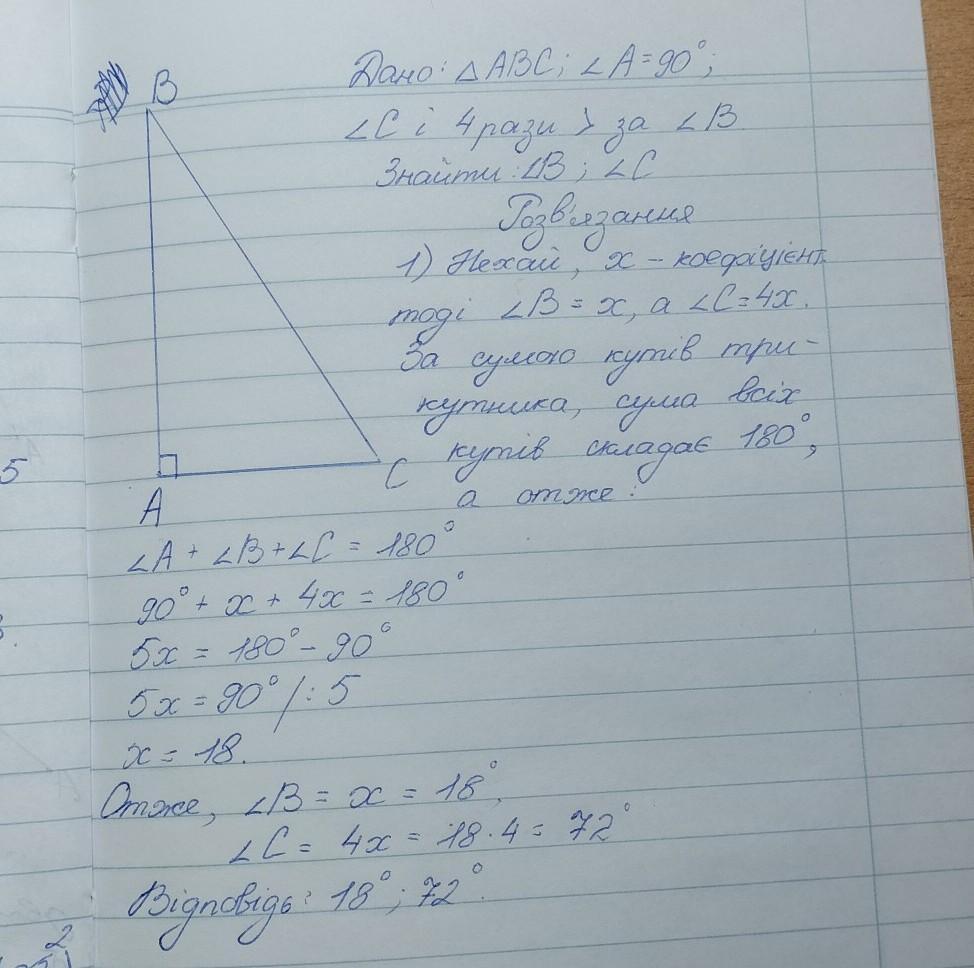 B
Дано: △ABC; ∠A=90°;
∠C і 4 рази > за ∠B
Знайти: ∠B; ∠C
Розв'язання
1) Нехай, x - коефіцієнт
тоді ∠B = x, а ∠C=4x.
За сумою кутів три-
кутника, сума всіх
кутів складає 180°,
C
а отже:
A
∠A + ∠B + ∠C = 180°
90° + x + 4x = 180°
5x = 180° - 90°
5x = 90° /: 5
x = 18.
Отже, ∠B = x = 18°,
∠C = 4x = 18·4 = 72°
Відповідь: 18°; 72°.
5
2